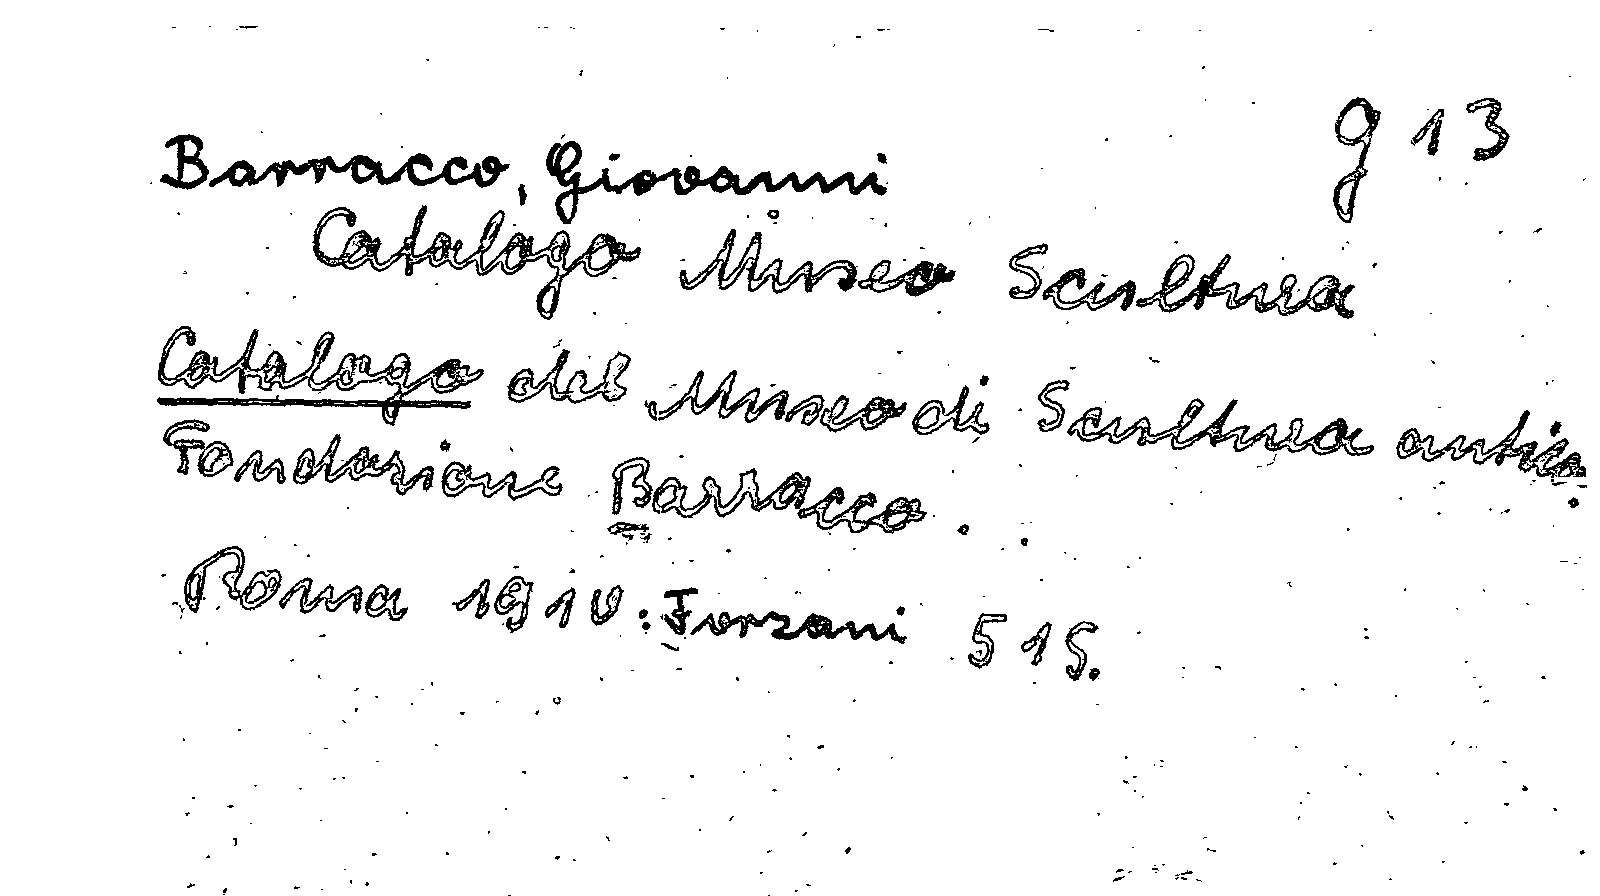 g 13
Barracco, Giovanni
Catalogo Museo Scultura
Catalogo del Museo di Scultura antica.
Fondazione Barracco.
Roma 1910: Forzani 51 S.